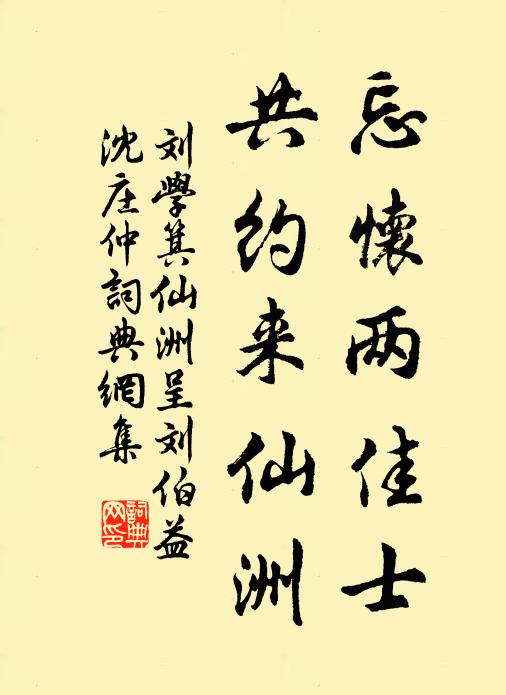 忘懷两佳士
共约来仙洲
刘學箕仙洲呈刘伯益
沈庄仲詞典網集
詞典
网印